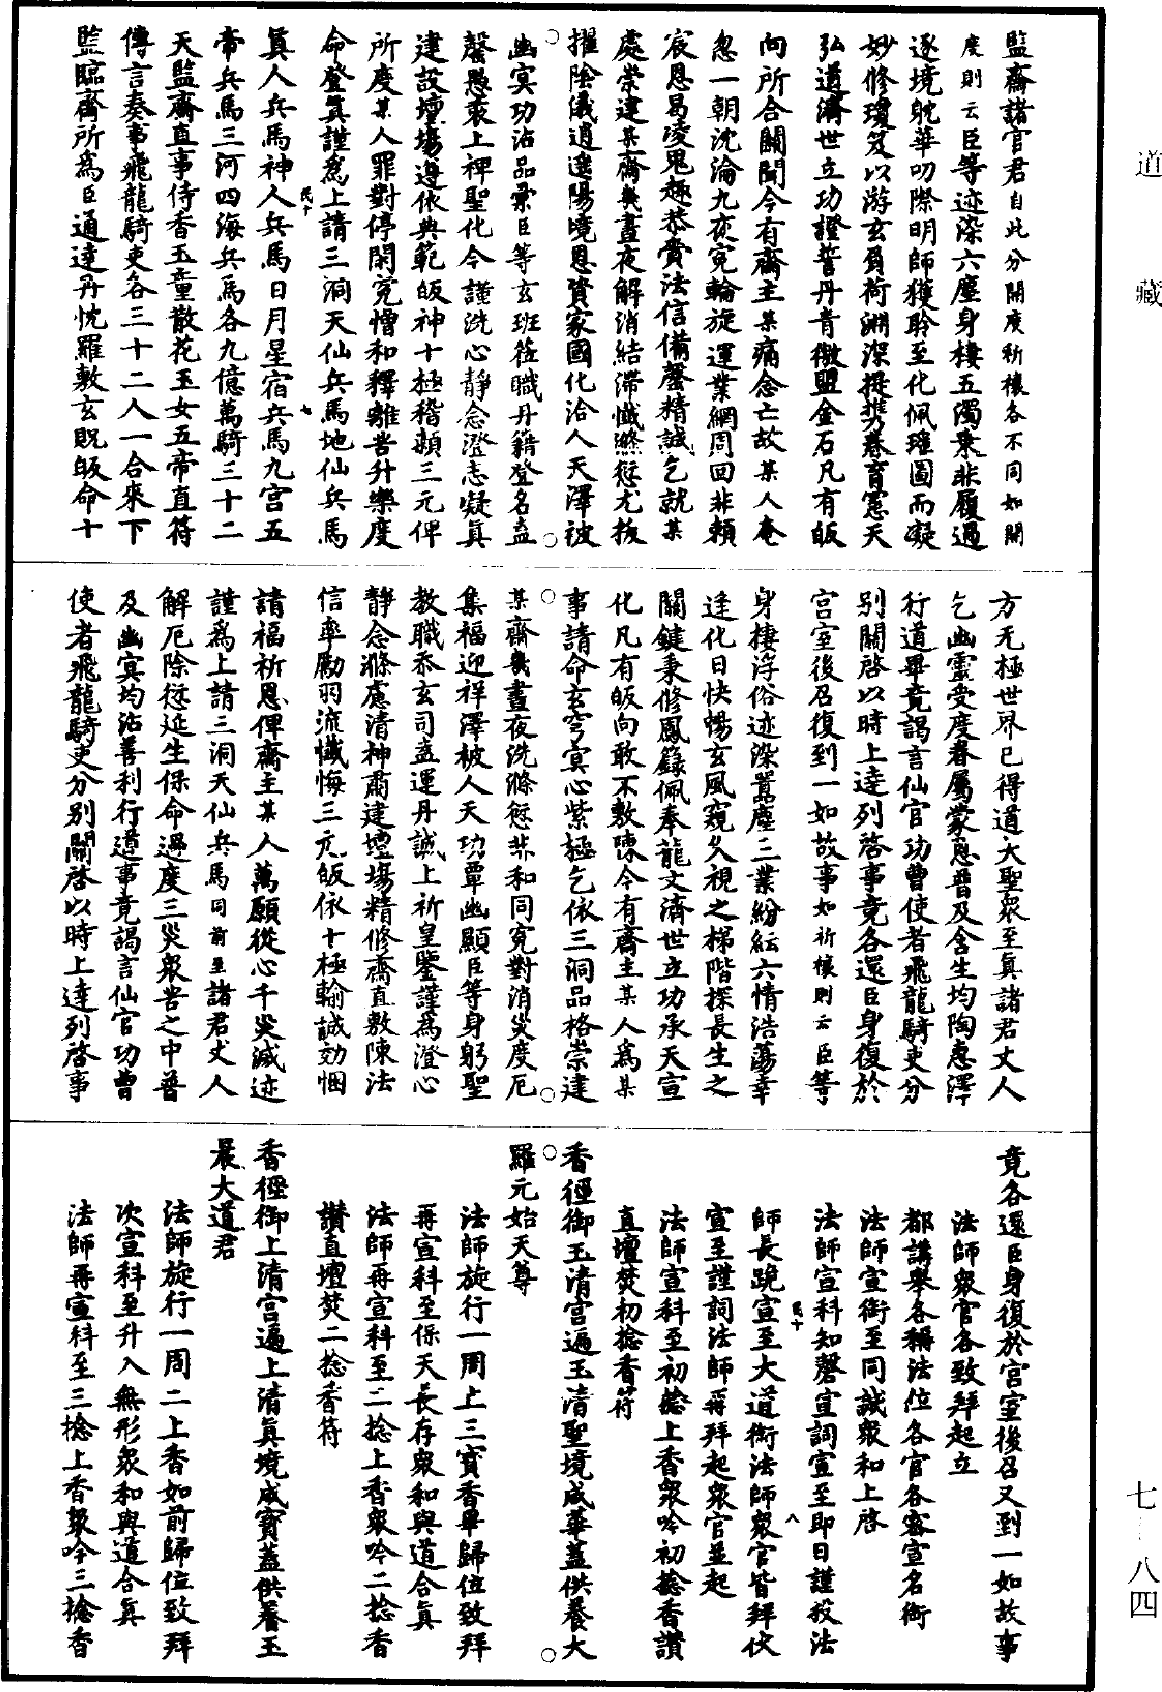 道藏
監齋諸官君自此分開度祈禳各不同如開
度則云臣等迹染六塵身棲五濁秉非履過
逐境躭華叨際明師獲聆至化佩璀圖而凝
妙修瓊笈以游玄負荷淵深提攜養育憲天
弘道濟世立功證誓丹青徹盟金石凡有皈
向所合關聞今有齋主某痛念亡故某人奄
忽一朝沈淪九夜寃輪旋運業網周回非賴
宸恩曷凌鬼趣恭賫法信備罄精誠乞就某
處崇建某齋幾晝夜解消結滯懺滌愆尤拔
擢陰儀逍遥陽境恩資家國化洽人天澤被
幽冥功沾品彙臣等玄班蒞職丹籍登名盍
罄愚衷上禆聖化今謹洗心靜念澄志凝眞
建設壇場遵依典範皈神十極稽顙三元俾
所度某人罪對停閑寃憎和釋離苦升樂度
命登眞謹爲上請三洞天仙兵馬地仙兵馬
民十
七
眞人兵馬神人兵馬日月星宿兵馬九宫五
帝兵馬三河四海兵馬各九億萬騎三十二
天監齋直事侍香玉童散花玉女五帝直符
傳言奏事飛龍騎吏各三十二人一合來下
監臨齋所爲臣通達丹忱羅敷玄貺皈命十
方无極世界已得道大聖衆至眞諸君丈人
乞幽靈受度眷屬蒙恩普及含生均陶惠澤
行道畢竟謁言仙官功曹使者飛龍騎吏分
别關啓以時上達列啓事竟各還臣身復於
宫室後召復到一如故事如祈禳則云臣等
身棲浮俗迹染囂塵二業紛紜六情浩蕩幸
逢化日快暢玄風窺久視之梯階探長生之
關鍵秉修鳳籙佩奉龍文濟世立功承天宣
化凡有皈向敢不敷陳今有齋主某人爲某
事請命玄穹冥心紫極乞依三洞品格崇建
某齋幾晝夜洗滌愆非和同寃對消災度厄
集福迎祥澤被人天功覃幽顯臣等身躬聖
教職忝玄司盍運丹誠上祈皇鑒謹為澄心
靜念滌慮清神肅建壇場精修齋直敷陳法
信率勵羽流懺悔三元皈依十極輸誠効悃
請福祈恩俾齋主某人萬願從心千災滅迹
謹爲上請三洞天仙兵馬同前至諸君丈人
解厄除愆延生保命過度三災衆苦之中普
及幽冥均沾善利行道事竟謁言仙官功曹
使者飛龍騎吏分别關啓以時上達列啓事
竟各還臣身復於宫室後召又到一如故事
法師衆官各致拜起立
都講舉各稱法位各官各密宣名銜
法師宣銜至同誠衆和上啓
法師宣科知磬宣詞宣至即日謹投法
民十
八
師長跪宣至大道銜法師衆官皆拜伏
宣至謹詞法師再拜起衆官並起
法師宣科至初捻上香衆吟初捻香讚
直壇焚初捻香符
香徑御玉清宫遍玉清聖境成華蓋供養大
羅元始天尊
法師旋行一周上三寳香畢歸位致拜
再宣科至保天長存衆和與道合眞
法師再宣科至二捻上香衆吟二捻香
讚直壇焚二捻香符
香徑御上清宫遍上清眞境成寳蓋供養玉
晨大道君
法師旋行一周二上香如前歸位致拜
次宣科至升入無形衆和與道合眞
法師再宣科至三捻上香衆吟三捻香
七‐八四